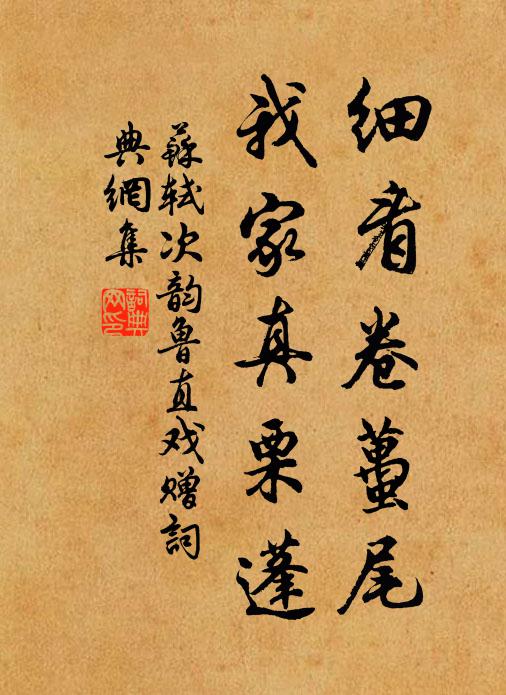 细看卷虿尾
我家真栗蓬
蘇轼次韵鲁直戏赠詞
典網集
詞典网印